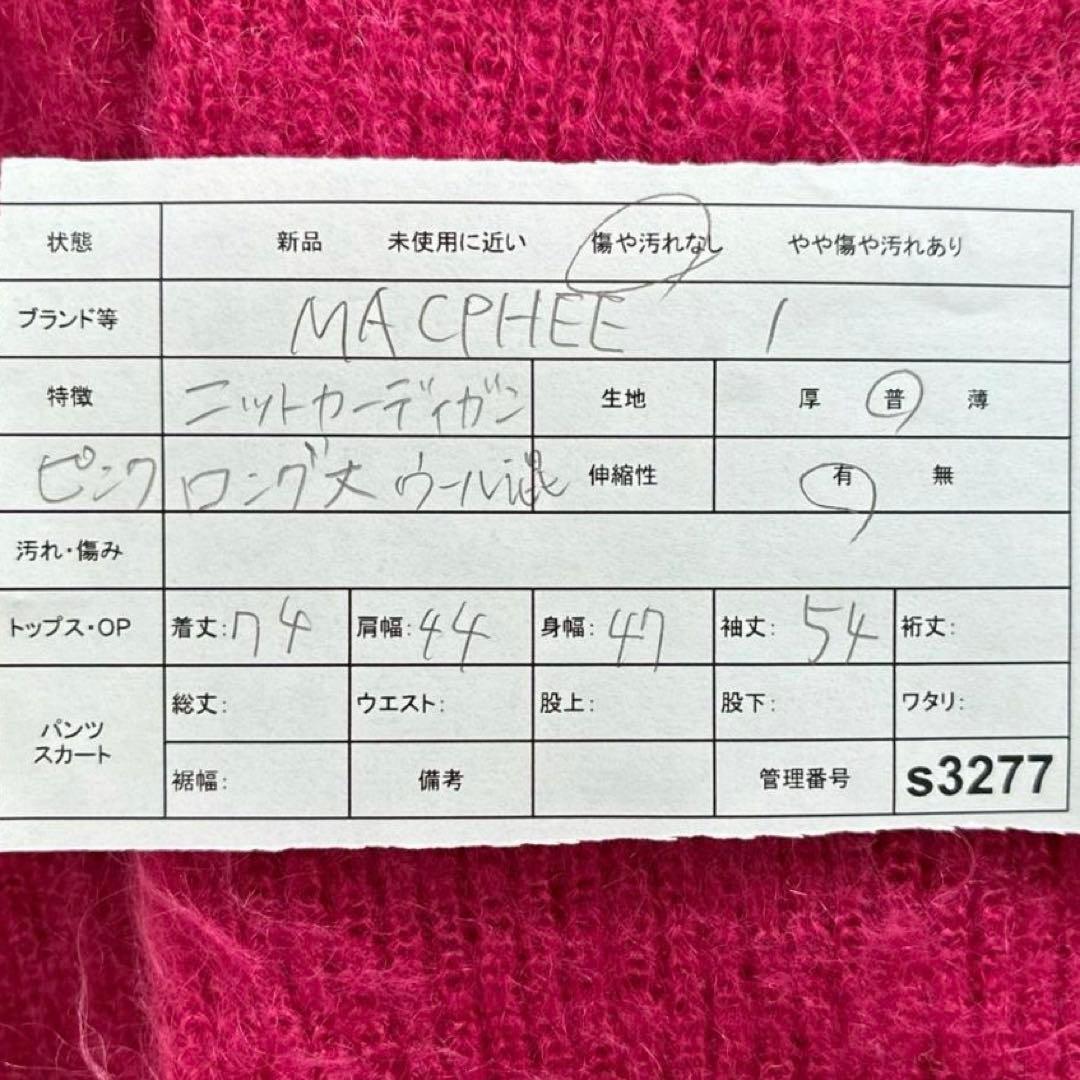 状態 新品 未使用に近い 傷や汚れなし やや傷や汚れあり
ブランド等 MACPHEE 1
特徴 ニットカーディガン 生地 厚 普 薄
ピンク ロング丈 ウール混 伸縮性 有 無
汚れ・傷み
トップス・OP 着丈:74 肩幅:44 身幅:47 袖丈:54 裄丈:
パンツ スカート 総丈: ウエスト: 股上: 股下: ワタリ:
裾幅: 備考 管理番号 s3277